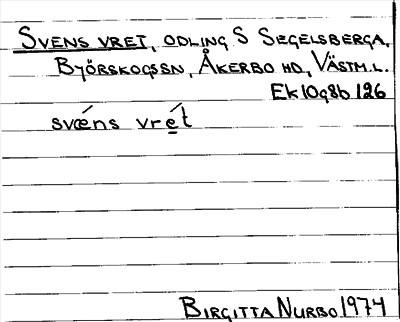 SVENS VRET, ODLING S SEGELSBERGA,
BJÖRSKOGSSN, ÅKERBO HD, VÄSTM.L.
Ek 10g8b 126
svǽns vré̱t
BIRGITTA NURBO 1974